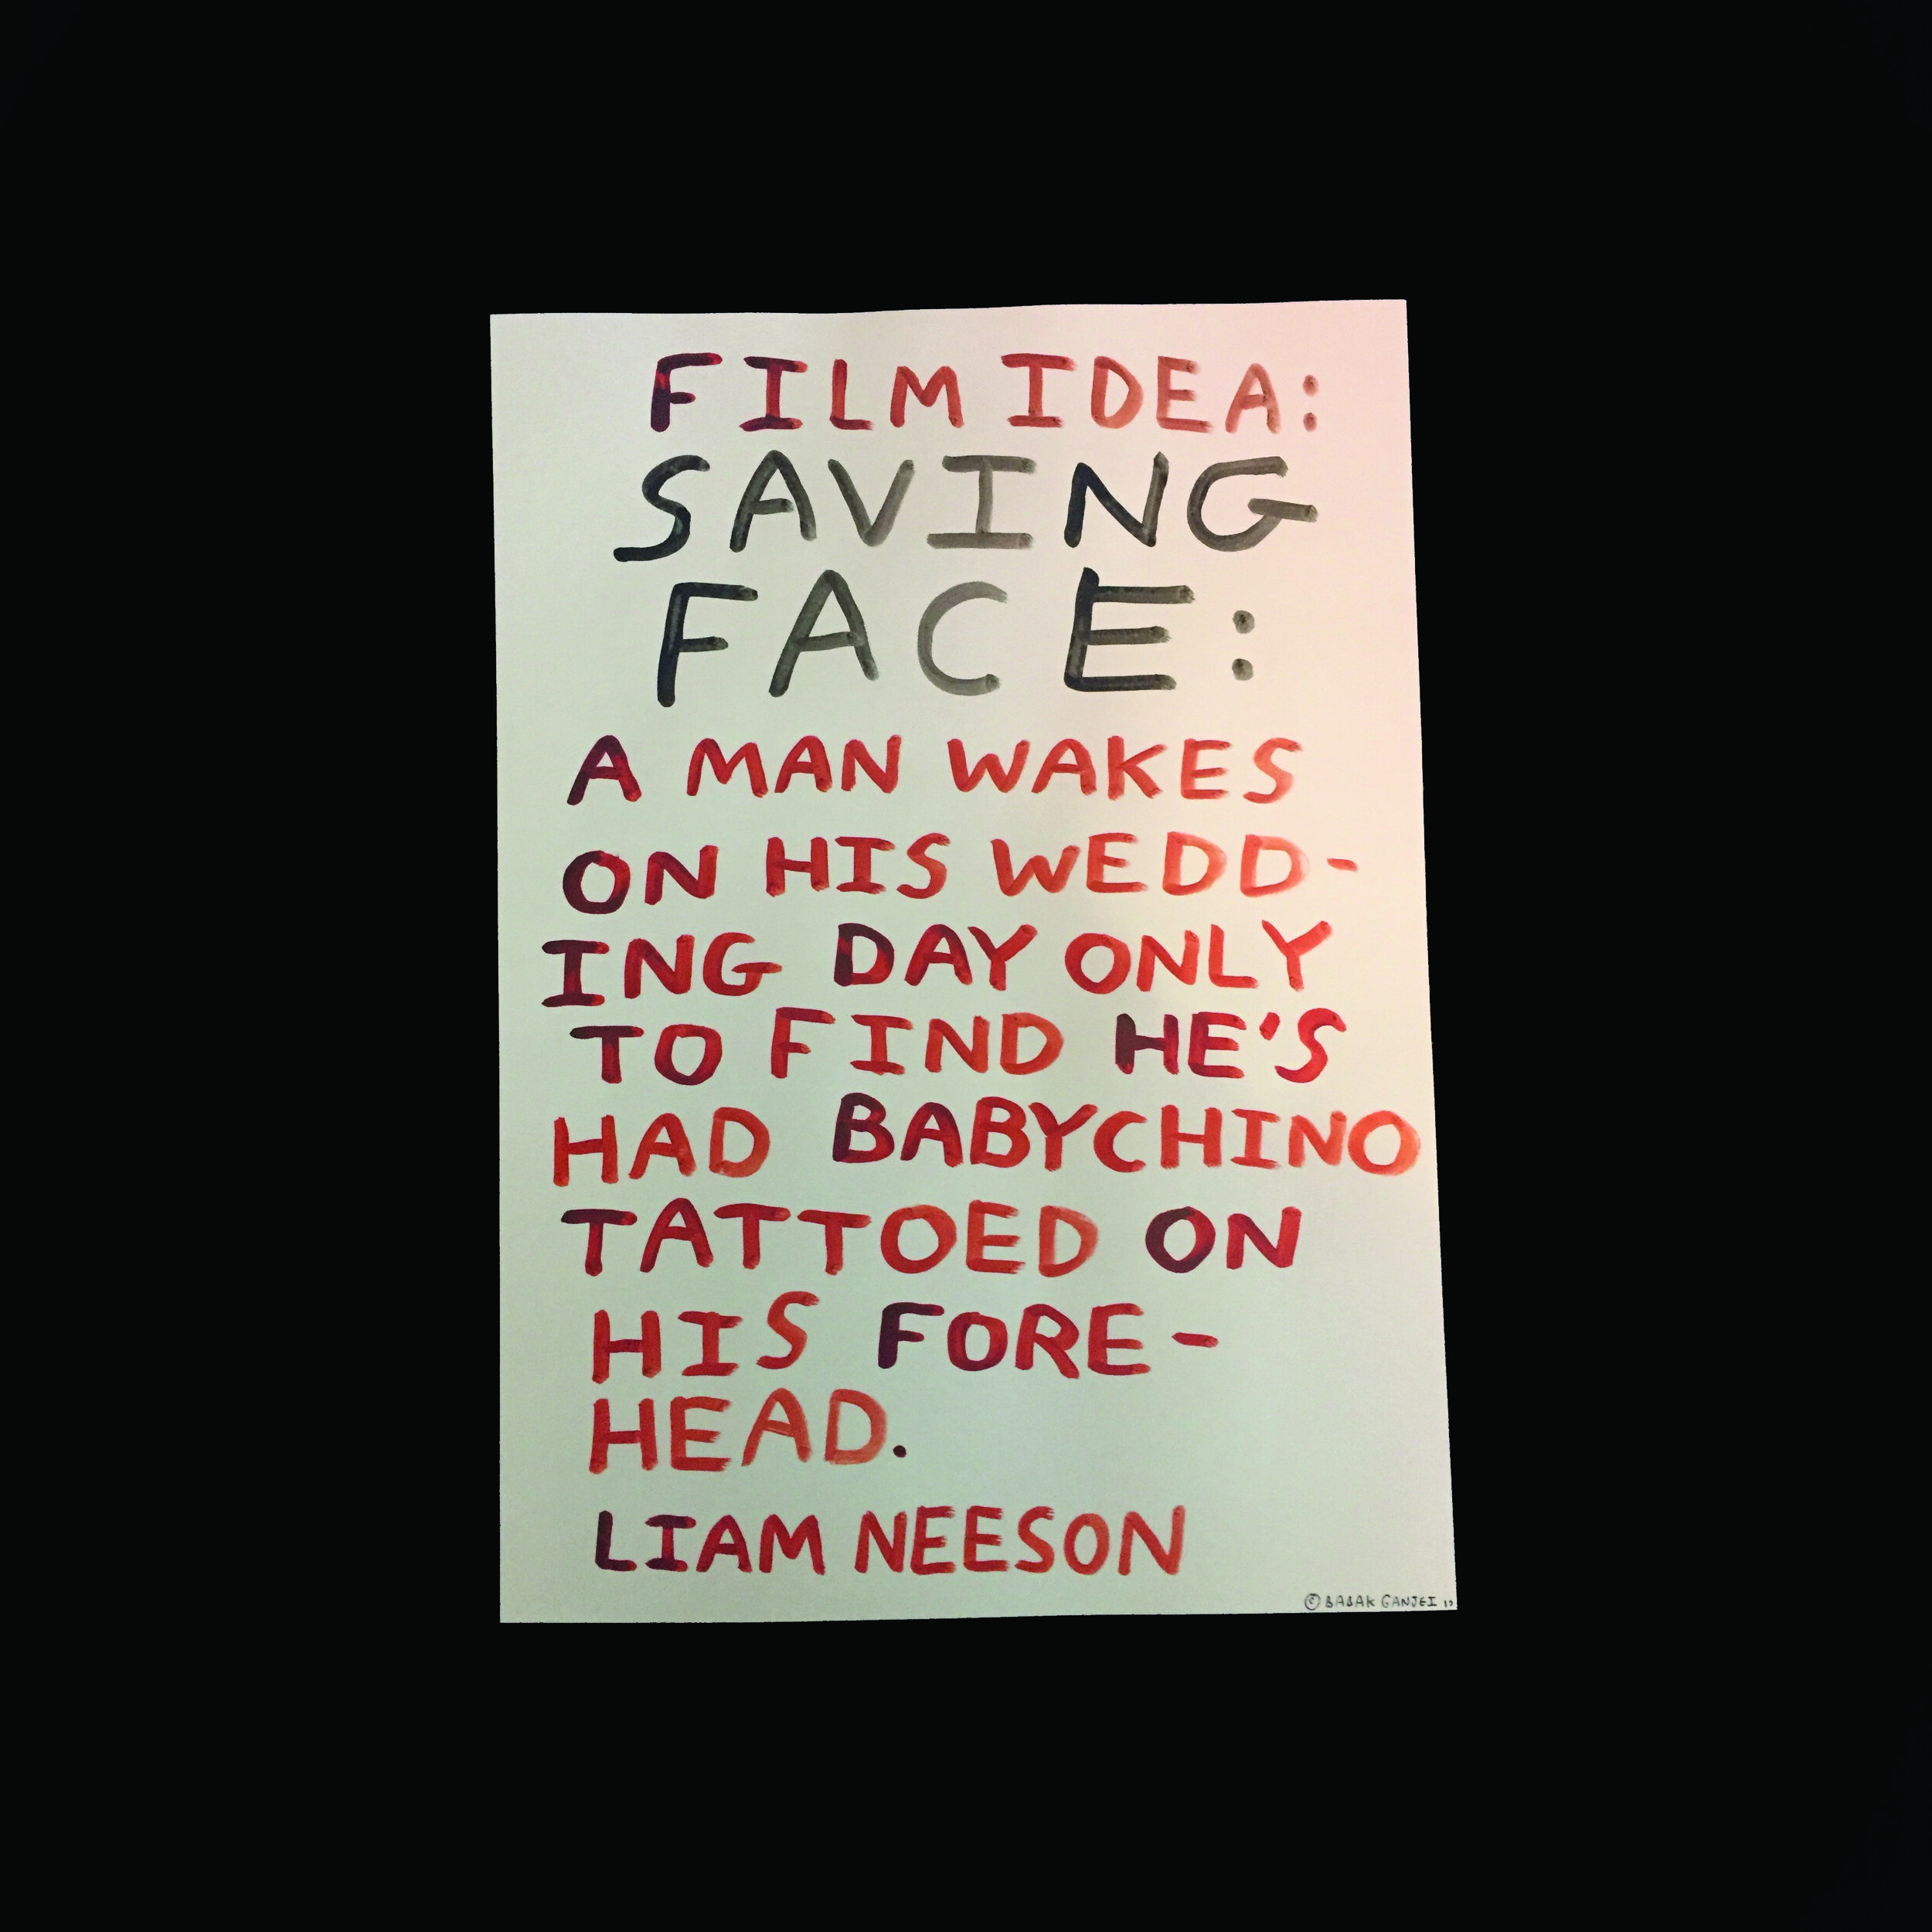 FILM IDEA:
SAVING
FACE:
A MAN WAKES
ON HIS WEDD-
ING DAY ONLY
TO FIND HE'S
HAD BABYCHINO
TATTOED ON
HIS FORE-
HEAD.
LIAM NEESON
© BABAK GANJEI